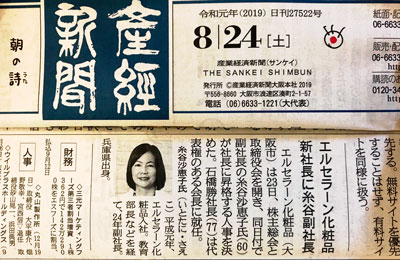 産經新聞
朝の詩
うた
令和元年(2019) 日刊27522号
8/24[土]
©産業経済新聞(サンケイ)
THE SANKEI SHIMBUN
発行所 ©産業経済新聞大阪本社 2019
〒556-8660 大阪市浪速区湊町2-1-57
電話 (06)6633-1221(大代表)
紙面・記
06-66
販売・配
06-66
購読のお
0120-34
http
先する。無料サイトを優先
することはせず、有料サイ
トを同様に扱う。
エルセラーン化粧品
新社長に糸谷副社長
エルセラーン化粧品(大
阪市)は23日、株主総会と
取締役会を開き、同日付で
副社長の糸谷沙恵子氏(60)
が社長に昇格する人事を決
めた。石橋勝社長(77)は代
表権のある会長に就任。
糸谷沙恵子氏
(いとたに・さえ
こ)平成元年、
エルセラーン化
粧品入社。教育
部長などを経
て、24年副社長。
兵庫県出身。
財務
人事